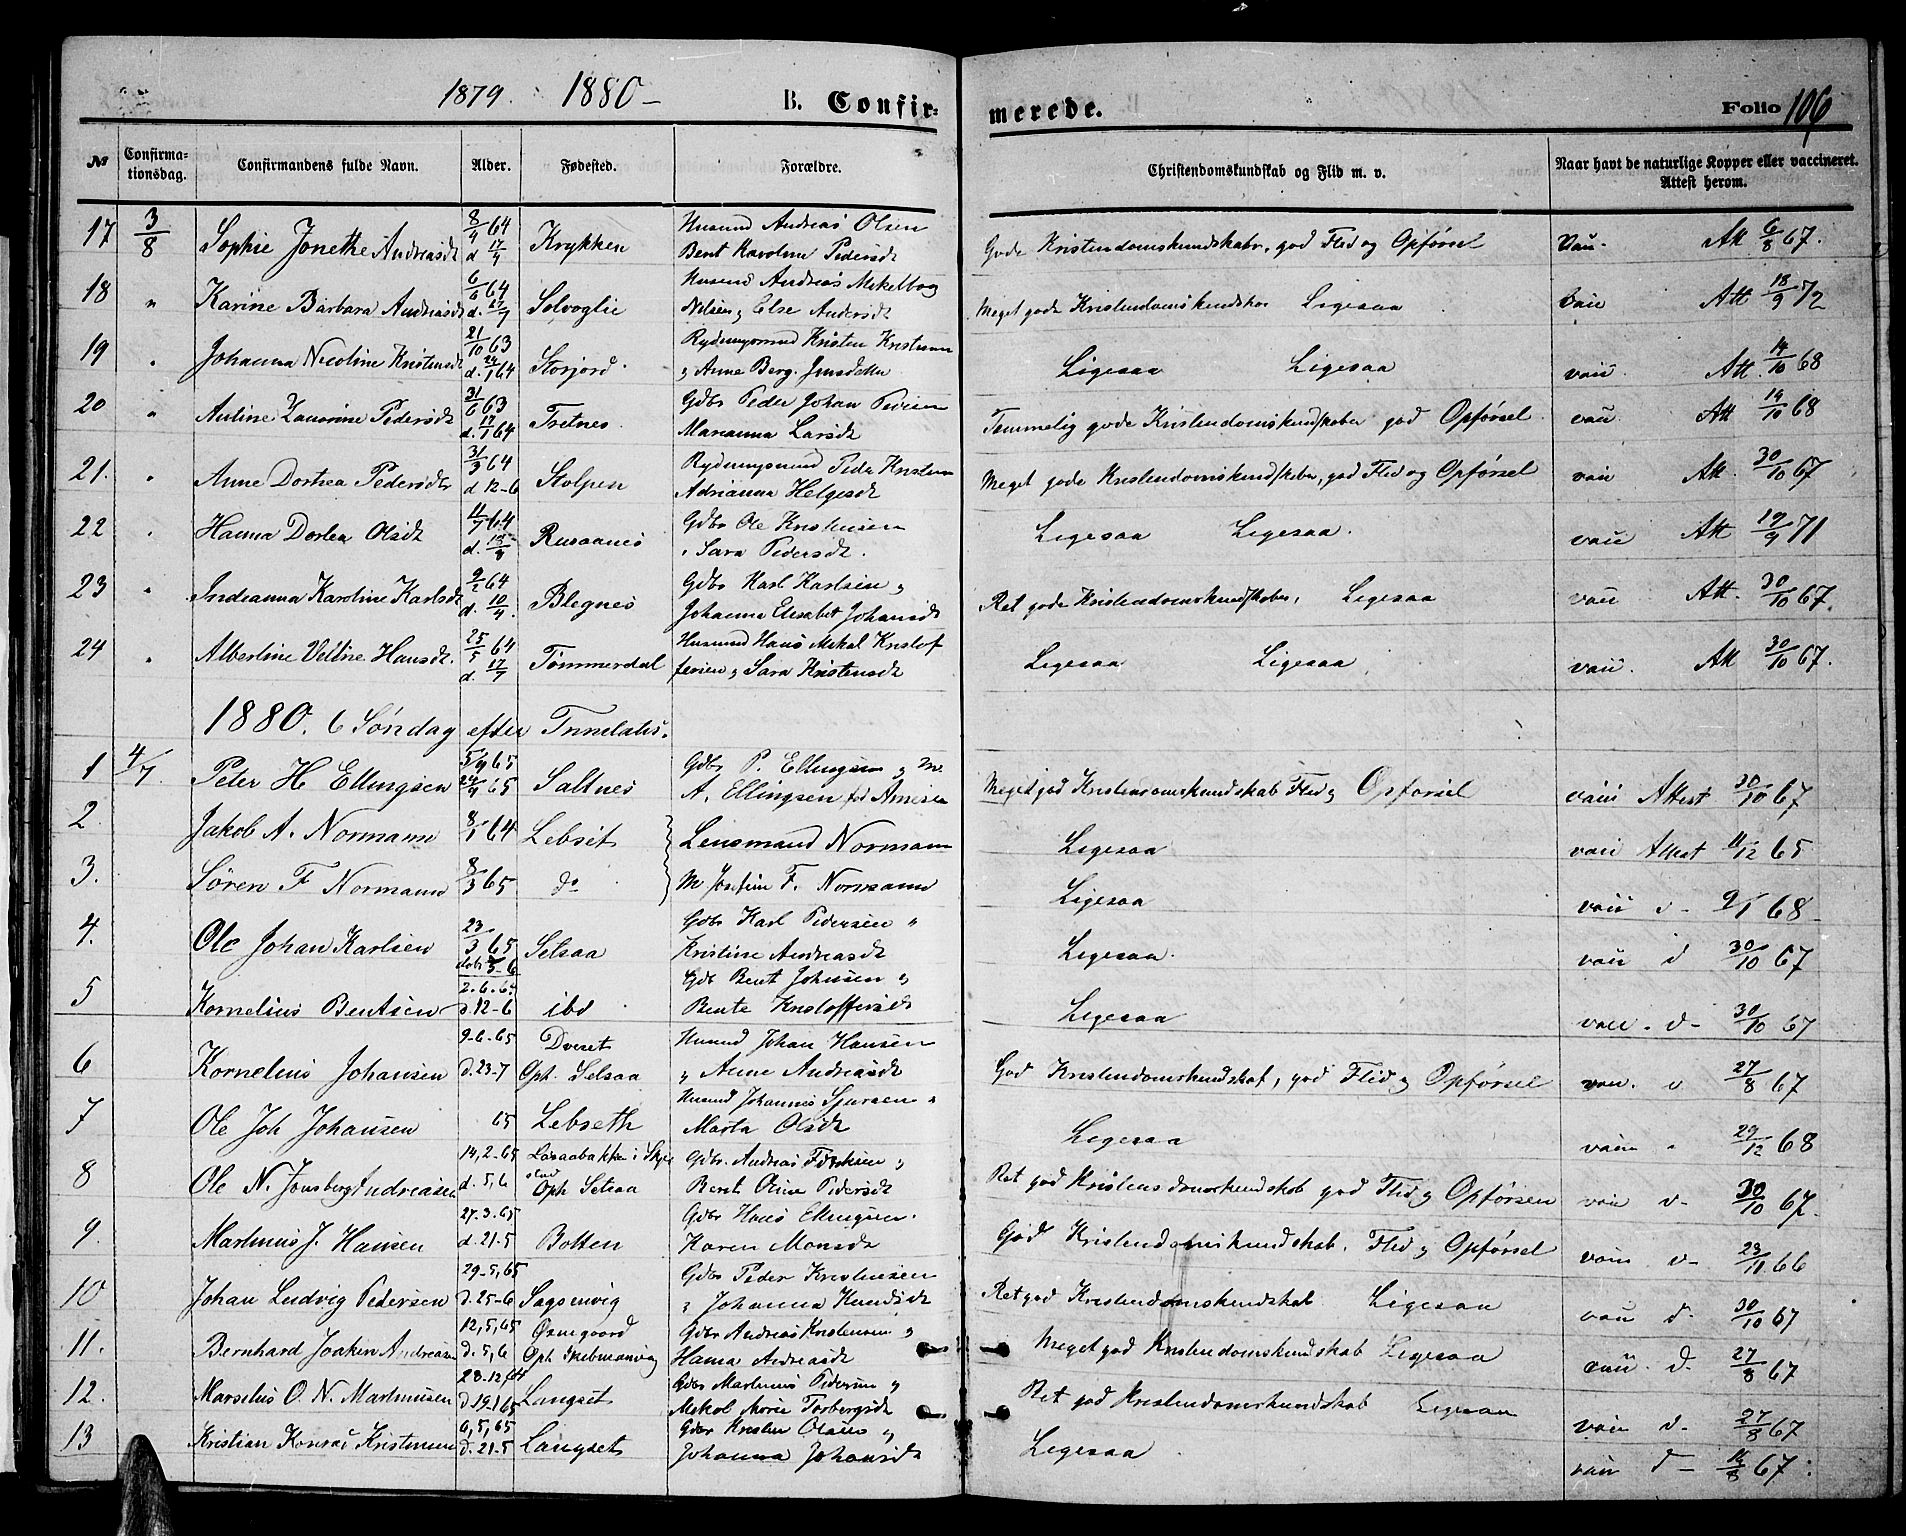 1879. 1880-
B. Confir-
merede.
Folio 106
№
Confirma-
tionsdag.
Confirmandens fulde Navn.
Alder.
Fødested.
Forældre.
Christendomskundskab og Flid m. v.
Naar havt de naturlige Kopper eller vaccineret.
Attest herom.
17 3/8 Sophie Jonethe Andreasdt 8/4 64 d 17/4 Krykken Husmd Andreas Olsen
Berit Karolina Pedersdt Gode Kristendomskundskabr, god Flid og Opførsel Vac. Att 6/8 67.
18 " Karine Barbara Andreasdt 6/6 64 d. 27/7 Solvoglie Husmd Andreas Mekelborg
Nilsen og Else Andersdt Meget gode Kristendomskundskor Ligesaa vac Att 18/9 72
19 " Johanna Nicoline Kristensdt 21/10 63 d. 24/1 64 Storjord Rydningsmd Kristen Kristensen
og Anne Berg. Jensdatter Ligesaa Ligesaa vac. Att. 14/10 68
20 " Antine Laurine Pedersdt 31/6 63 d. 17/1 64 Tretnes. Gdbr Peder Johan Pedersen
Marianna Larsdt Temmelig gode Kristendomskundskaber god Opførsel vac. Att 19/10 68
21. " Anne Dortea Pedersdt 31/3 64 d 12-6 Stolpen Rydningsmd Peder Kristensen
Adrianna Helgesdt Meget gode Kristendomskundskaber, god Flid og Opførsel vac Att. 30/10 67
22 " Hanna Dortea Olsdt 11/7 64 d. Rusaanes Gdbr Ole Kristensen
Sara Pedersdt. Ligesaa Ligesaa. vac Att 19/9 71
23 " Indianna Karoline Karlsdt 9/2 64 d. 10/4. Blegnes Gdbr Karl Karlsen og
Johanna Elisabet Johansdt Ret gode Kristendomskundskaber, Ligesaa vac Att. 30/10 67.
24 " Albertine Veline Hansdt. 25/5 64 d. 17/7 Tømmerdal Husmd Hans Mikal Kristof
fersen og Sara Kristensdt Ligesaa Ligesaa vac. Att 30/10 67.
1880. 6 Søndag efter Trinitatis.
1 4/7 Peter H Ellingsen 5/9 65 24/9 65 Saltnes Gdbr P. Ellingsen og M.
A. Ellingsen fød Arnesen Meget god Kristendomskundskab Flid og Opførsel vac Attest 30/10 67
2. Jakob A. Normann 8/1 64 Lebsit Lensmand Normann Ligesaa vac Attest 11/12 65
3. Søren F Normann 8/3 65 do M Josefine F. Normann Ligesaa vac d- 9/1 68-
4. Ole Johan Karlsen 23/3 65 døbt 5-6 Selsaa Gdbr Karl Pedersen "
Kristine Andreasdt Ligesaa. vac d 30/10 67
5 Kornelius Bentsen 2. 6. 64 d. 12-6 ibd Gdb Bent Johnsen og
Bente Kristoffersdt Ligesaa vac. d- 30/10 67
6 Kornelius Johansen 9-6-65 d. 23-7 Dverset
Oph. Selsaa Husmd Johan Hansen
og Anne Andreasdt God Kristendomskundskab, god Flid og Opførsel vac. d 27/8 67
7 Ole Joh Johansen 65 Lebseth Husmd Johannes Sjursen "
Marta Olsdt Ligesaa vac " 29/12 68
8 Ole N. Jonsberg Andreasen 14, 2-65 d. 5, 6 Lasaabakken i Skjer
stad
Oph Selsaa Gdbr. Andreas Forksen og
Berit Oline Pedersdt Ret god Kristensdomskundskab god Flid og Opførsen vac d- 30/10 67.
9. Martinus J. Hansen 27. 3. 65 d. 21-5 Botten Gdbr Hans Ellingsen.
Karen Monsdt God Kristendomskundskab. Flid og Opførsel vac d- 23/11. 66
10 Johan Ludvig Pedersen 29-5, 65 d. 25-6 Sagsenvig Gdbr Peder Kristensen
og Johanna Knudsdt Ret god Kristendomskundskab Ligesaa vac d- 30/10 67
11. Bernhard Joakim Andreasen 12, 5, 65 d. 5, 6 Øsnegaard
Oph Gdbr Andreas Kristensen og
Hanna Andreasdt Meget god Kristendomskundskab Ligesaa vac. d. 27/8 67
12. Marselius O. N. Martinusen 28-12 64 d. 19-1 65 Langset Gdbr Martinus Pedersen og
Mekal Marie Torbergsdt Ret god Kristendomskundskab Ligesaa vac d- 27/8 67
13 Kristian Konrad Kristensen 6, 5, 65 d. 21-5 Langset Gdbr Kristen Olsen og
Johanna Johansdt Ligesaa vac d- 14/8 67.